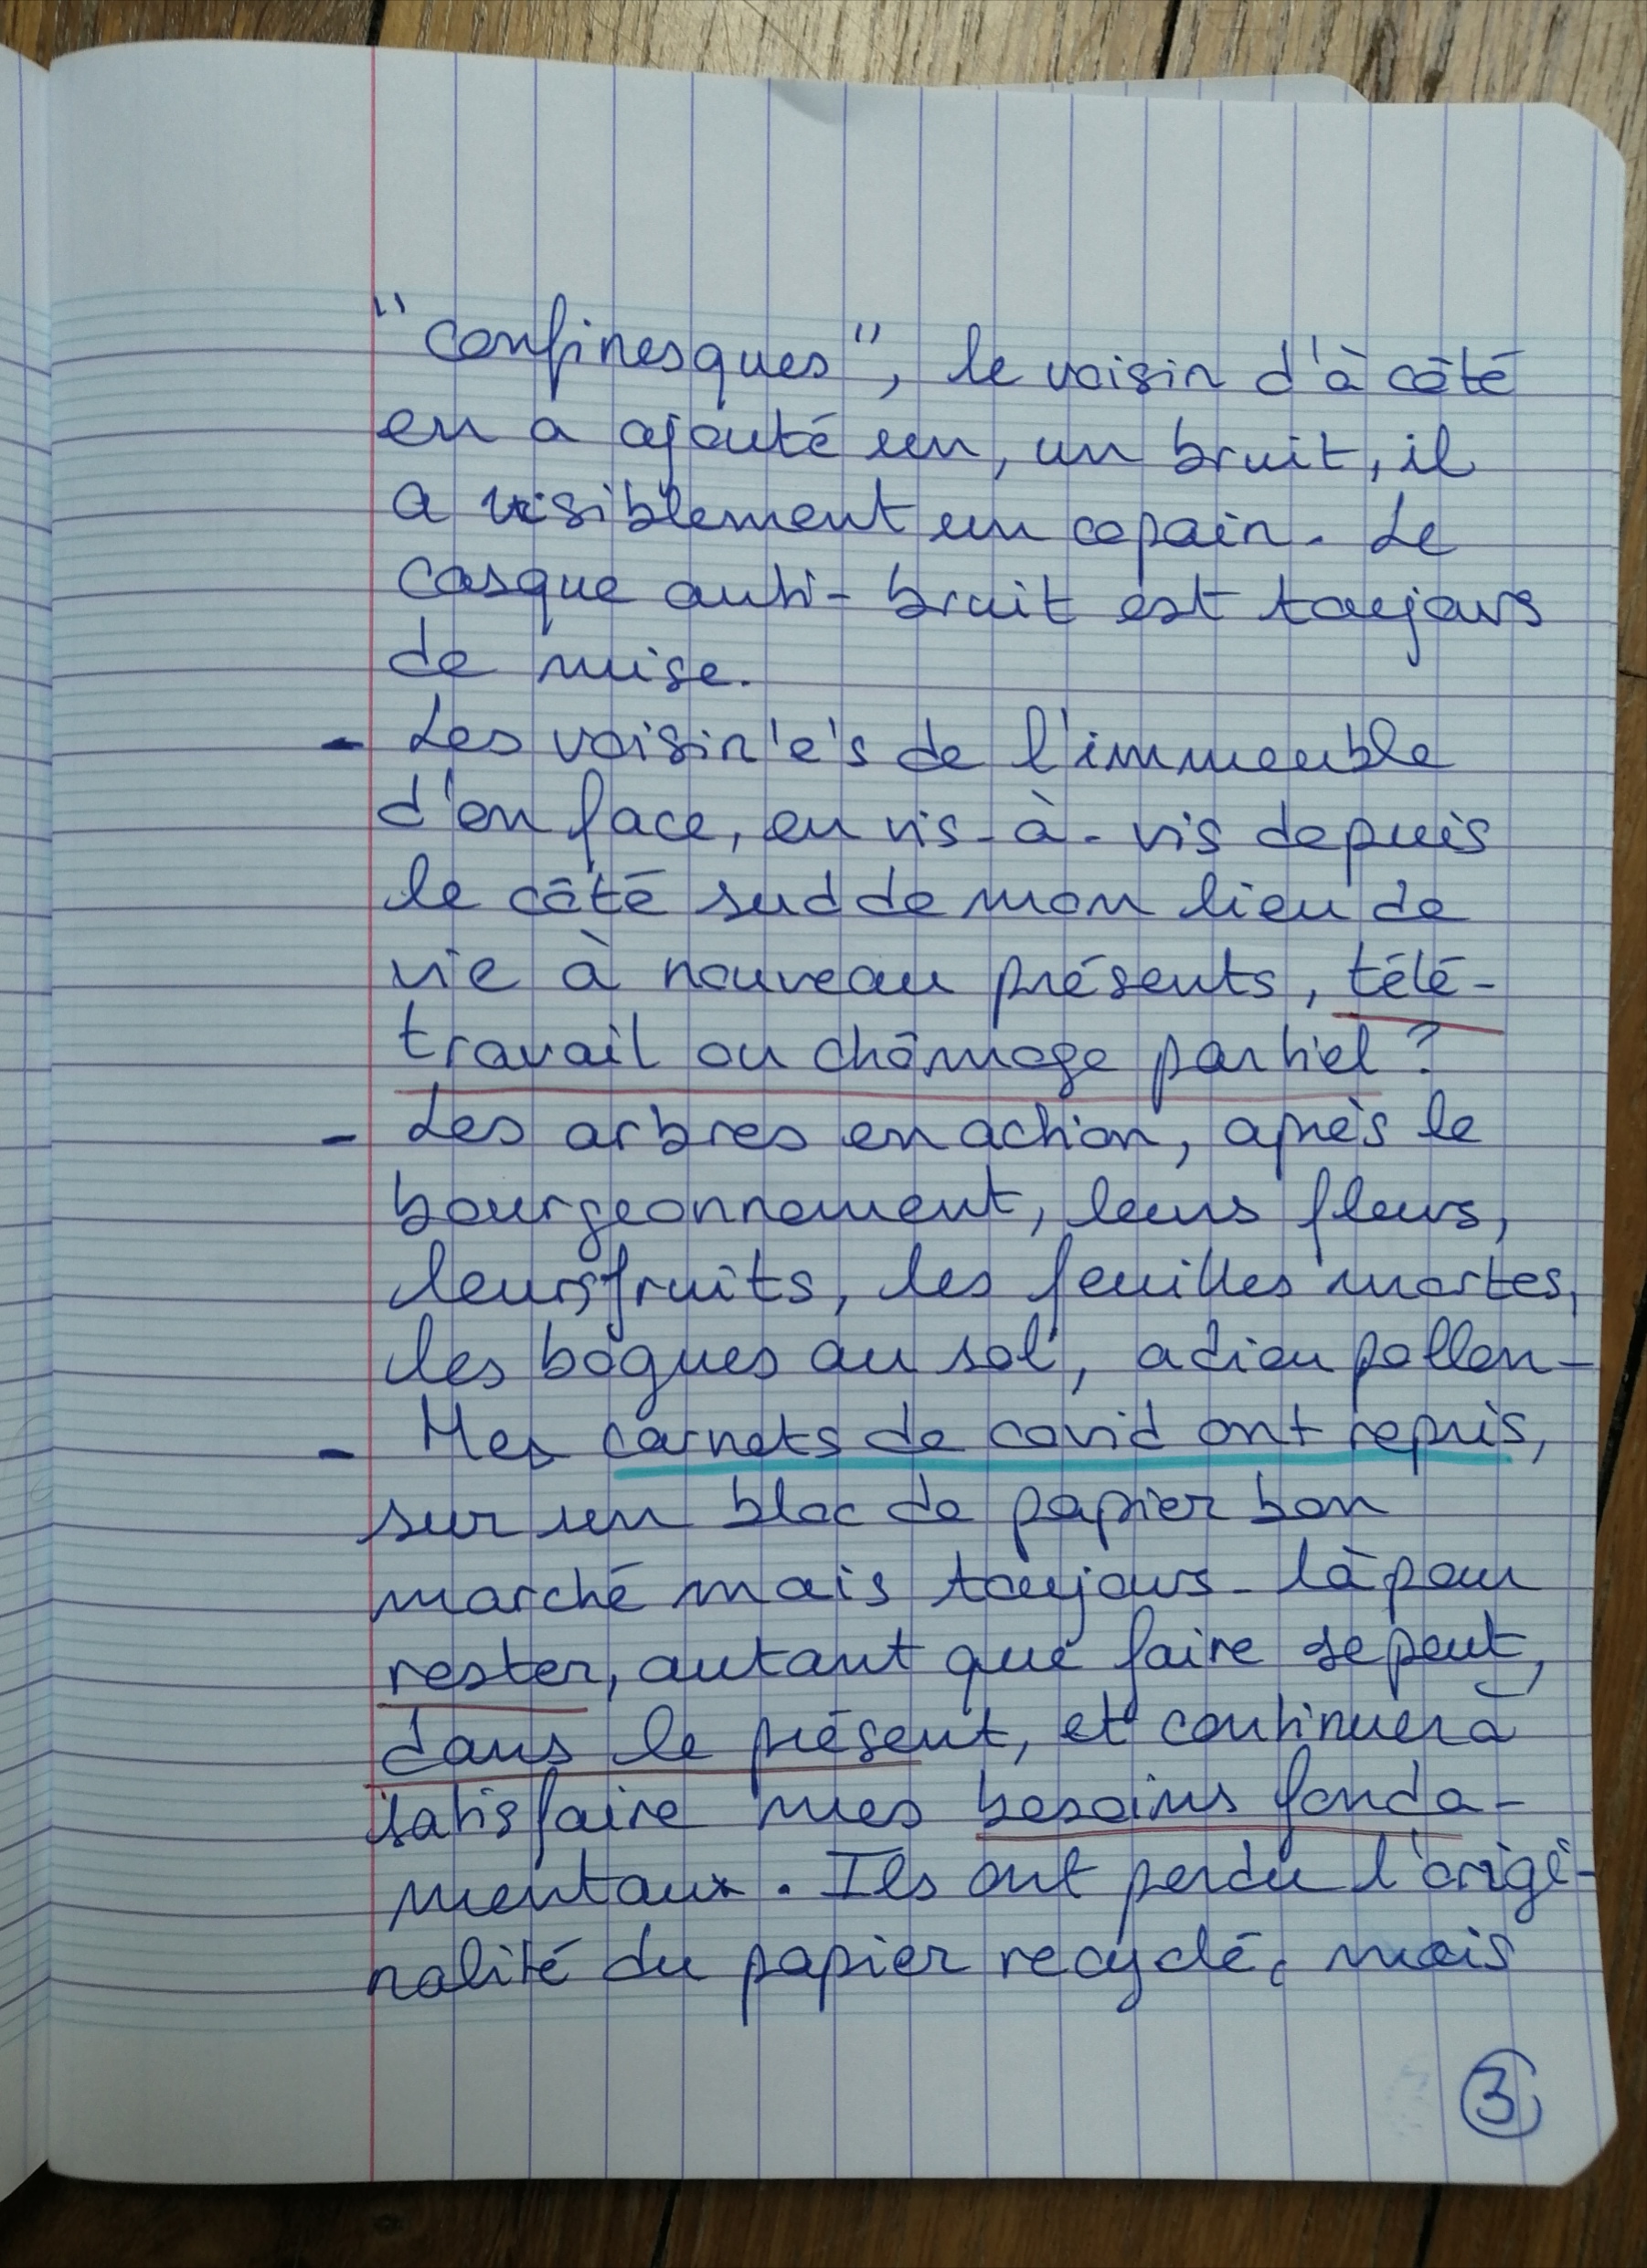 "confinesques", le voisin d'à côté
en a ajouté un, un bruit, il
a visiblement un copain. Le
casque anti-bruit est toujours
de mise.
- Les voisin'e's de l'immeuble
d'en face, en vis-à-vis depuis
le côté sud de mon lieu de
vie à nouveau présents, télé-
travail ou chômage partiel ?
- Les arbres en action, après le
bourgeonnement, leurs fleurs,
leurs fruits, les feuilles mortes,
les bogues au sol, adieu pollen -
- Mes carnets de covid ont repris,
sur un bloc de papier bon
marché mais toujours là pour
rester, autant que faire se peut,
dans le présent, et continuer à
satisfaire mes besoins fonda-
mentaux. Ils ont perdu l'origi-
nalité du papier recyclé, mais
3